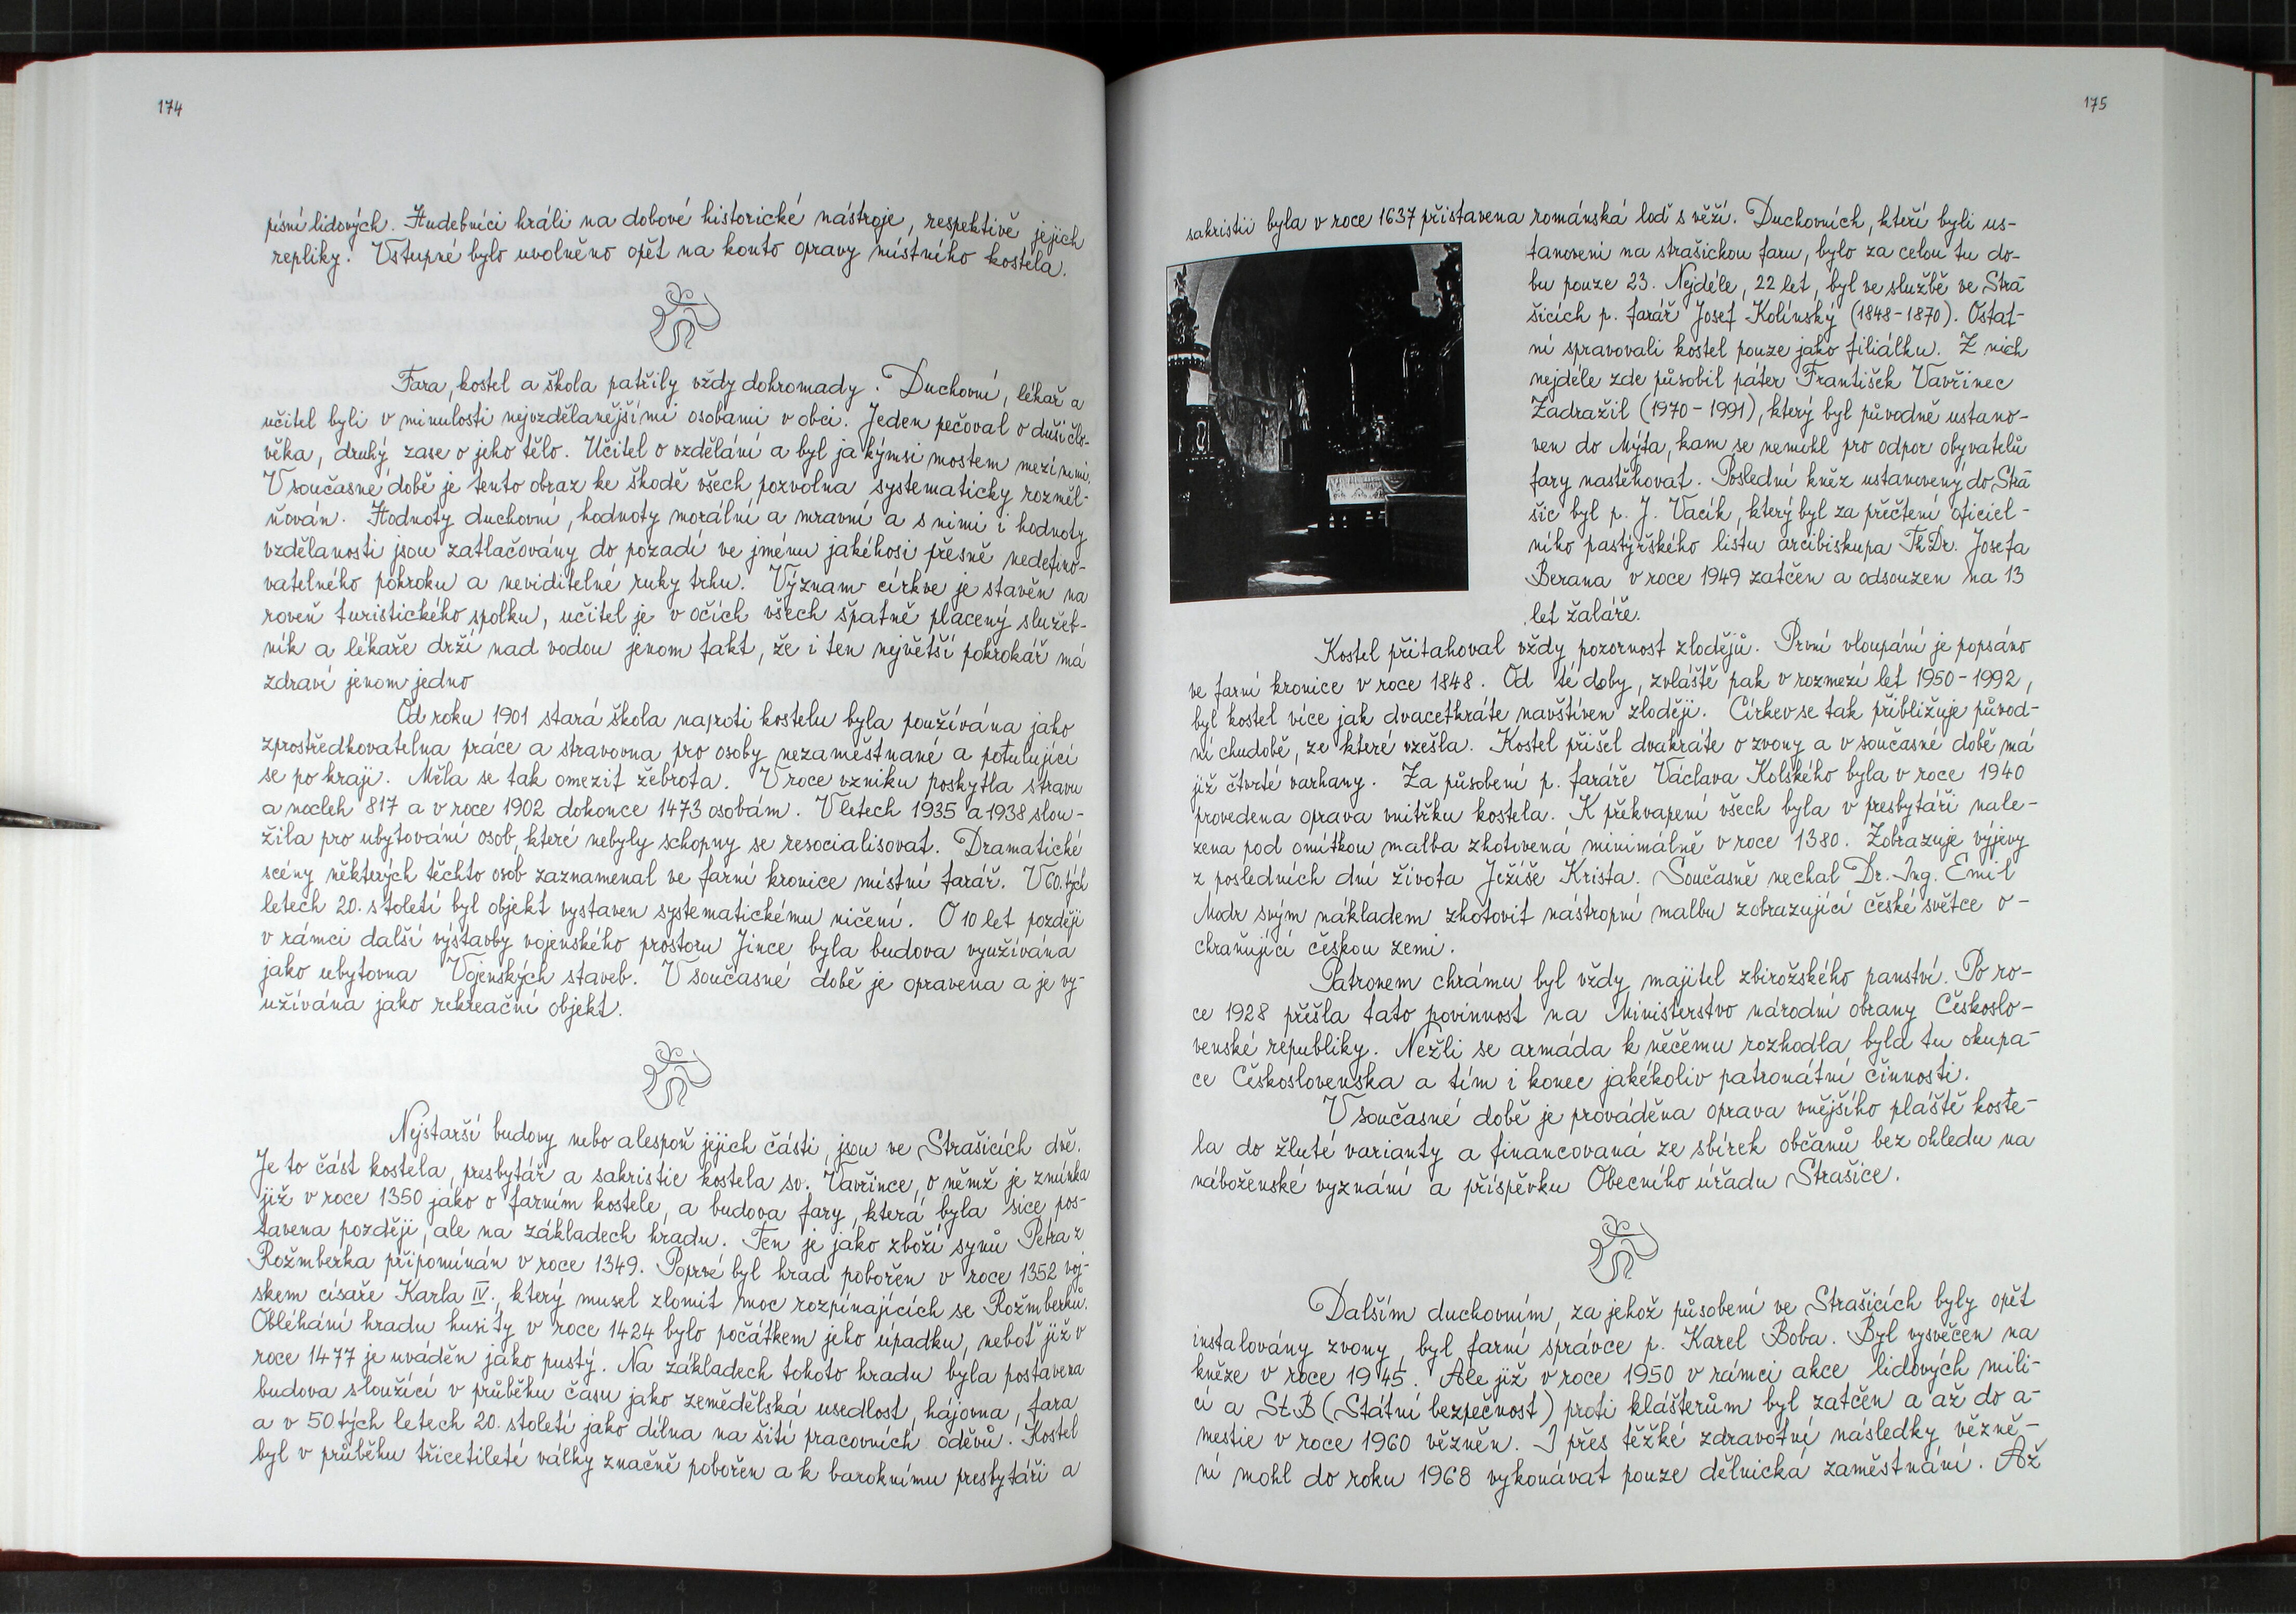 174
písní lidových. Hudebníci hráli na dobové historické nástroje, respektivě jejich
repliky. Vstupné bylo uvolněno opět na konto opravy místního kostela.
Fara, kostel a škola patřily vždy dohromady. Duchovní, lékař a
učitel byli v minulosti nejvzdělanějšími osobami v obci. Jeden pečoval o duši člo-
věka, druhý zase o jeho tělo. Učitel o vzdělání a byl jakýmsi mostem mezi nimi.
V současné době je tento obraz ke škodě všech pozvolna systematicky rozměl-
ňován. Hodnoty duchovní, hodnoty morální a mravní a s nimi i hodnoty
vzdělanosti jsou zatlačovány do pozadí ve jménu jakéhosi přesně nedefino-
vatelného pokroku a neviditelné ruky trhu. Význam církve je stavěn na
roveň turistického spolku, učitel je v očích všech špatně placený služeb-
ník a lékaře drží nad vodou jenom fakt, že i ten největší pokrokář má
zdraví jenom jedno
Od roku 1901 stará škola naproti kostelu byla používána jako
zprostředkovatelna práce a stravovna pro osoby nezaměstnané a potulující
se po kraji. Měla se tak omezit žebrota. V roce vzniku poskytla stravu
a nocleh 817 a v roce 1902 dokonce 1473 osobám. V letech 1935 a 1938 slou-
žila pro ubytování osob, které nebyly schopny se resocialisovat. Dramatické
scény některých těchto osob zaznamenal ve farní kronice místní farář. V 60.tých
letech 20. století byl objekt vystaven systematickému ničení. O 10 let později
v rámci další výstavby vojenského prostoru Jince byla budova využívána
jako ubytovna Vojenských staveb. V současné době je opravena a je vy-
užívána jako rekreační objekt.
Nejstarší budovy nebo alespoň jejich části, jsou ve Strašicích dvě.
Je to část kostela, presbytář a sakristie kostela sv. Vavřince, o němž je zmínka
již v roce 1350 jako o farním kostele, a budova fary, která byla sice pos-
tavena později, ale na základech hradu. Ten je jako zboží synů Petra z
Rožmberka připomínán v roce 1349. Poprvé byl hrad pobořen v roce 1352 voj-
skem císaře Karla IV., který musel zlomit moc rozpínajících se Rožmberků.
Obléhání hradu husity v roce 1424 bylo počátkem jeho úpadku, neboť již v
roce 1477 je uváděn jako pustý. Na základech tohoto hradu byla postavena
budova sloužící v průběhu času jako zemědělská usedlost, hájovna, fara
a v 50.tých letech 20. století jako dílna na šití pracovních oděvů. Kostel
byl v průběhu třicetileté války značně pobořen a k baroknímu presbytáři a
175
sakristii byla v roce 1637 přistavena románská loď s věží. Duchovních, kteří byli us-
tanoveni na strašickou faru, bylo za celou tu do-
bu pouze 23. Nejdéle, 22 let, byl ve službě ve Stra-
šicích p. farář Josef Kolínský (1848-1870). Ostat-
ní spravovali kostel pouze jako filiálku. Z nich
nejdéle zde působil páter František Vavřinec
Zadražil (1970-1991), který byl původně ustano-
ven do Mýta, kam se nemohl pro odpor obyvatelů
fary nastěhovat. Poslední kněz ustanovený do Stra-
šic byl p. J. Vacík, který byl za přečtení oficiel-
ního pastýřského listu arcibiskupa ThDr. Josefa
Berana v roce 1949 zatčen a odsouzen na 13
let žaláře.
Kostel přitahoval vždy pozornost zlodějů. První vloupání je popsáno
ve farní kronice v roce 1848. Od té doby, zvláště pak v rozmezí let 1950-1992,
byl kostel více jak dvacetkráte navštíven zloději. Církev se tak přibližuje původ-
ní chudobě, ze které vzešla. Kostel přišel dvakráte o zvony a v současné době má
již čtvrté varhany. Za působení p. faráře Václava Kolského byla v roce 1940
provedena oprava vnitřku kostela. K překvapení všech byla v presbytáři nale-
zena pod omítkou malba zhotovená minimálně v roce 1380. Zobrazuje výjevy
z posledních dní života Ježíše Krista. Současně nechal Dr. Ing. Emil
Modr svým nákladem zhotovit nástropní malbu zobrazující české světce o-
chraňující českou zemi.
Patronem chrámu byl vždy majitel zbirožského panství. Po ro-
ce 1928 přešla tato povinnost na Ministerstvo národní obrany Českoslo-
venské republiky. Nežli se armáda k něčemu rozhodla, byla tu okupa-
ce Československa a tím i konec jakékoliv patronátní činnosti.
V současné době je prováděna oprava vnějšího pláště koste-
la do žluté varianty a financovaná ze sbírek občanů bez ohledu na
náboženské vyznání a příspěvku Obecního úřadu Strašice.
Dalším duchovním, za jehož působení ve Strašicích byly opět
instalovány zvony, byl farní správce p. Karel Boba. Byl vysvěcen na
kněze v roce 1945. Ale již v roce 1950 v rámci akce lidových mili-
cí a StB (Státní bezpečnost) proti klášterům byl zatčen a až do a-
mestie v roce 1960 vězněn. I přes těžké zdravotní následky vězně-
ní mohl do roku 1968 vykonávat pouze dělnická zaměstnání. Až